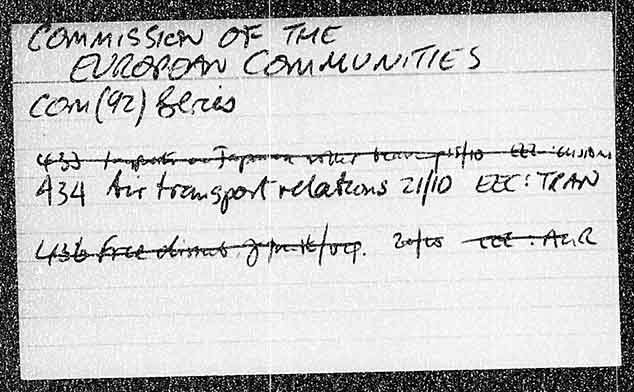 COMMISSION OF THE
EUROPEAN COMMUNITIES
COM (92) Series
433 Imports Japanese 15/10 EEC:
434 Air transport relations 21/10 EEC: TRAN
436 Free 20/10 EEC: